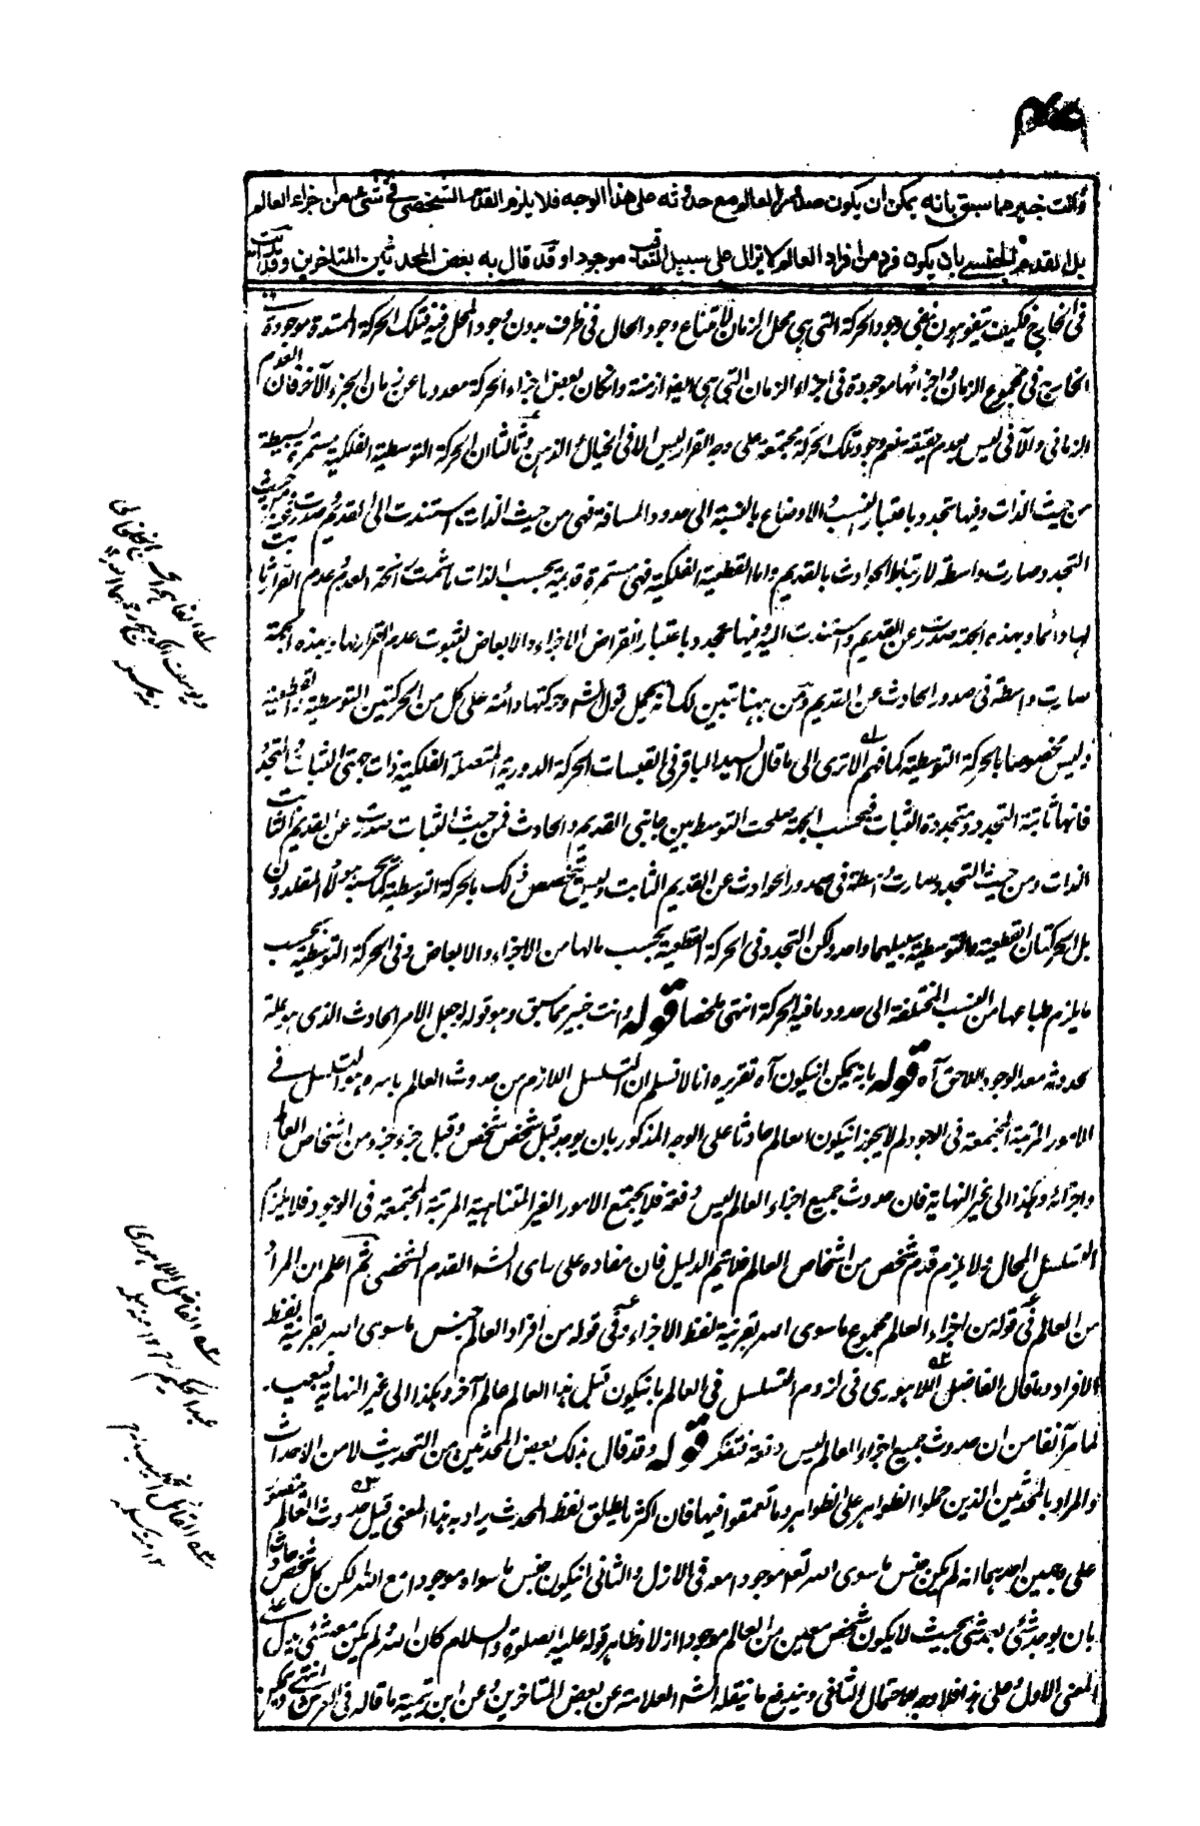 وانت خبير مما سبق بانه يمكن ان يكون صدور العالم مع حدوثه على هذا الوجه فلا يلزم القدم الشخصي في شيء من اجزاء العالم
بل القدم الجنسي بان يكون فرد من افراد العالم لا يزال على سبيل التعاقب موجودا وقد قال به بعض المحدثين المتاخرين وقد رأيت
في الخارج فكيف يتفوهون بنفي وجود الحركة التي هي محل الزمان لامتناع وجود الحال في ظرف بدون وجود المحل فيه فتلك الحركة الممتدة موجودة
الخارج في مجموع الزمان واجزائها موجودة في اجزاء الزمان التي هي ايضا ازمنة وان كان بعض اجزاء الحركة معدوما عن زمان الجزء الآخر فان العدم
الزماني والآني ليس بعدم حقيقة نعم وجود تلك الحركة مجتمعة على وجه القرار ليس الا في الخيال والذهن وثالثا ان الحركة التوسطية الفلكية مستمرة بسيطة
من حيث الذات وفيها تجدد باعتبار النسب والاوضاع بالنسبة الى حدود المسافة فهي من حيث الذات استندت الى القديم وصدرت عنه ومن حيث
التجدد صارت واسطة لارتباط الحوادث بالقديم واما القطعية الفلكية فهي مستمرة قديمة بحسب الذات ما شمت رائحة العدم وعدم القرار ثابت
لها دائما وبهذه الجهة صدرت عن القديم واستندت اليه وفيها تجدد باعتبار انقراض الاجزاء والابعاض لثبوت عدم القرار لها وبهذه الجهة
صارت واسطة في صدور الحادث عن القديم ومن ههنا تبين لك انه يحمل قول الشه وحركتها دائمة على كل من الحركتين التوسطية والقطعية
وليس مخصوصا بالحركة التوسطية كما فهم الا ترى الى ما قال السيد الباقر في القبسات الحركة الدورية المتصلة الفلكية ذات جهتي الثبات والتجدد
فانها ثابتة التجدد ومتجددة الثبات فبحسب الجهة صلحت التوسط بين جانبي القديم والحادث فمن حيث الثبات صدرت عن القديم الثابت
الذات ومن حيث التجدد صارت واسطة في صدور الحوادث عن القديم الثابت وليس تخصص ذلك بالحركة التوسطية كما يحسبه هؤلاء المقلدون
بل الحركتان القطعية والتوسطية سبيلهما واحد ولكن التجدد في الحركة القطعية بحسب ما لها من الاجزاء والابعاض وفي الحركة التوسطية بحسب
ما يلزم طباعها من النسب المختلفة الى حدود ما فيه الحركة انتهى ملخصا قوله وانت خبير مما سبق وهو قوله اجعل الامر الحادث الذي هو علة
لحدوثه معد الوجود اللاحق آه قوله بانه يمكن ان يكون آه تقريره انا لا نسلم ان التسلسل اللازم من حدوث العالم باسره هو التسلسل في
الامور المرتبة المجتمعة في الوجود لم لا يجوز ان يكون العالم حادثا على الوجه المذكور بان يوجد قبل شخص شخص وقبل جزء جزء من اشخاص العالم
واجزائه وهكذا الى غير النهاية فان حدوث جميع اجزاء العالم ليس دفعة فلا يجتمع الامور الغير المتناهية المرتبة المجتمعة في الوجود فلا يلزم
التسلسل المحال ولا يلزم قدم شخص من اشخاص العالم فلا يتم الدليل فان مفاده على راى الشه القدم الشخصي ثم اعلم ان المراد
من العالم في قوله من اجزاء العالم مجموع ما سوى الله بقرينة لفظ الاجزاء وفي قوله من افراد العالم جنس ما سوى الله بقرينة لفظ
الافراد وما قال الفاضل اللاهوري في لزوم التسلسل في العالم بان يكون قبل هذا العالم عالم آخر وهكذا الى غير النهاية فعجب.
لما مر آنفا من ان حدوث جميع اجزاء العالم ليس دفعة فتفكر قوله وقد قال بذلك بعض المحدثين من التحديث لا من الاحداث
والمراد بالمحدثين الذين حملوا الظواهر على الظواهر وما تعمقوا فيها فان اكثر ما يطلق لفظ المحدث يراد به هذا المعنى قيل حدوث العالم متصور
على وجهين احدهما انه لم يكن جنس ما سوى الله تعالى موجودا معه في الازل والثاني ان يكون جنس ما سواه موجودا مع الله لكن كل شخص حادث
بان يوجد شيء بعد شيء بحيث لا يكون شخص معين من العالم موجودا ازلا وظاهر قوله عليه الصلوة والسلام كان الله ولم يكن معه شيء يدل على
المعنى الاول وعلى هذا فلا وجه للاحتمال الثاني ويندفع ما ينقله الشه العلامة عن بعض المتاخرين وعن ابن تيمية ما قاله في العرش انتهى